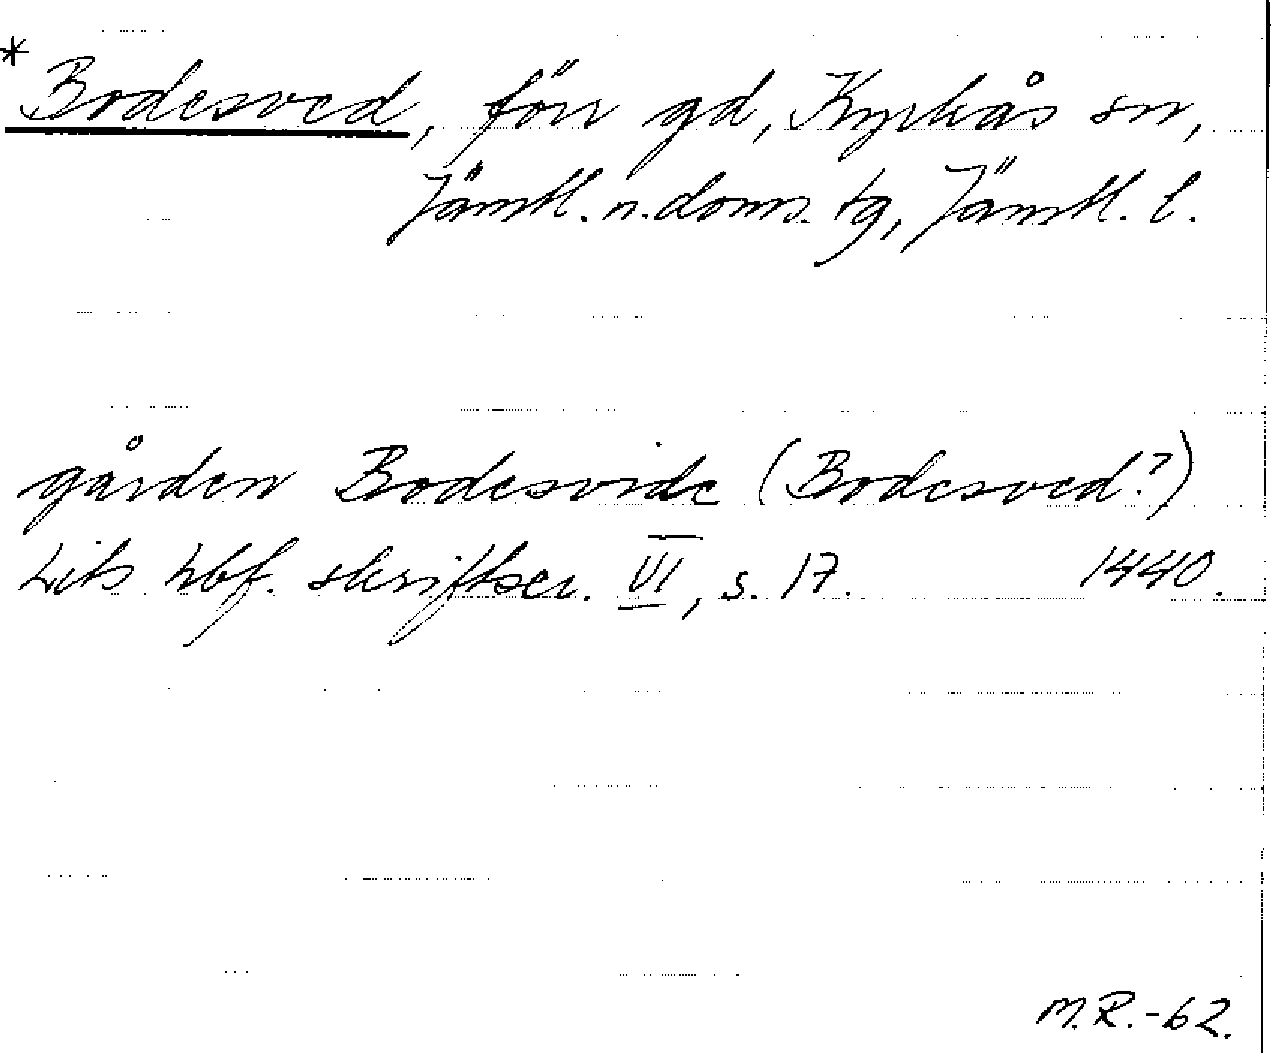 * Bodesved, förr gd, Kyrkås sn,
Jämtl. n. doms. tg, Jämtl. l.
gården Bodesvide (Bodesved?)
Lits hbf. skriftser. VI, s. 17. 1440.
M.R.-62.